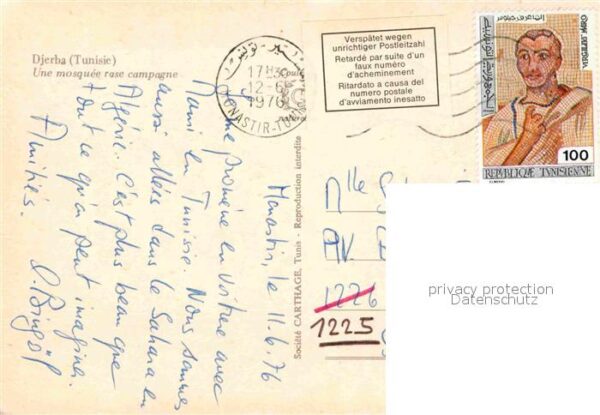 Djerba (Tunisie)
Une mosquée rase campagne
Monastir, le 11.6.76
Je me promène en voiture avec
Mami en Tunisie. Nous sommes
aussi allées dans le Sahara en
Algérie. C'est plus beau que
tout ce qu'on peut imaginer.
Amitiés.
Société CARTHAGE, Tunis - Reproduction interdite
17H-3
12-6
1976
MONASTIR
Verspätet wegen
unrichtiger Postleitzahl
Retardé par suite d'un
faux numéro
d'acheminement
Ritardato a causa del
numero postale
d'avviamento inesatto
100
REPUBLIQUE TUNISIENNE
Mlle
Av.
1226
1225
privacy protection
Datenschutz